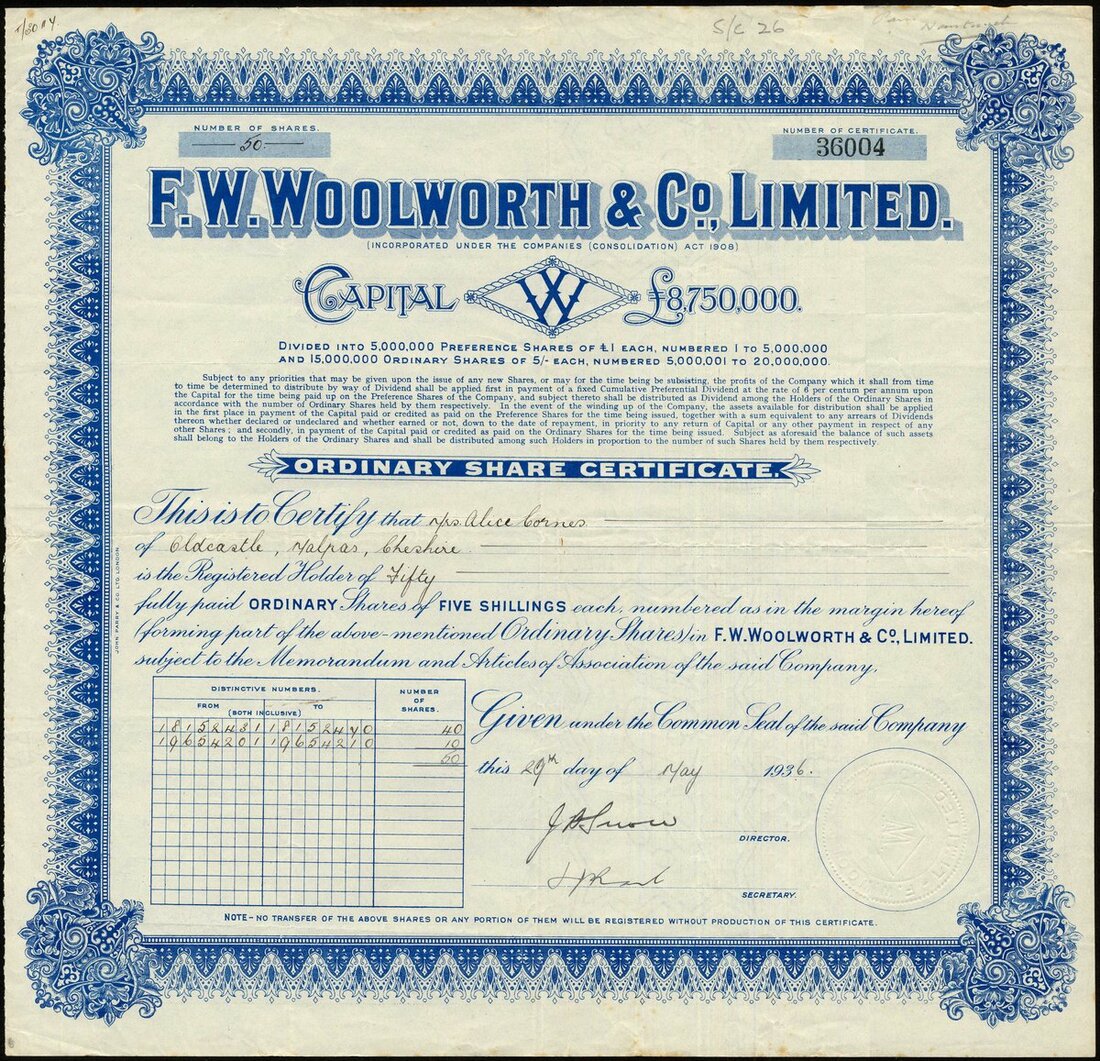 S/C 26
NUMBER OF SHARES.
50
NUMBER OF CERTIFICATE.
36004
F.W. WOOLWORTH & Co., LIMITED.
(INCORPORATED UNDER THE COMPANIES (CONSOLIDATION) ACT 1908)
CAPITAL W £8,750,000.
DIVIDED INTO 5,000,000 PREFERENCE SHARES OF £1 EACH, NUMBERED 1 TO 5,000,000
AND 15,000,000 ORDINARY SHARES OF 5/- EACH, NUMBERED 5,000,001 TO 20,000,000.
Subject to any priorities that may be given upon the issue of any new Shares, or may for the time being be subsisting, the profits of the Company which it shall from time
to time be determined to distribute by way of Dividend shall be applied first in payment of a fixed Cumulative Preferential Dividend at the rate of 6 per centum per annum upon
the Capital for the time being paid up on the Preference Shares of the Company, and subject thereto shall be distributed as Dividend among the Holders of the Ordinary Shares in
accordance with the number of Ordinary Shares held by them respectively. In the event of the winding up of the Company, the assets available for distribution shall be applied
in the first place in payment of the Capital paid or credited as paid on the Preference Shares for the time being issued, together with a sum equivalent to any arrears of Dividends
thereon whether declared or undeclared and whether earned or not, down to the date of repayment, in priority to any return of Capital or any other payment in respect of any
other Shares; and secondly, in payment of the Capital paid or credited as paid on the Ordinary Shares for the time being issued. Subject as aforesaid the balance of such assets
shall belong to the Holders of the Ordinary Shares and shall be distributed among such Holders in proportion to the number of such Shares held by them respectively.
ORDINARY SHARE CERTIFICATE.
This is to Certify that Mrs. Alice Cornes
of Oldcastle, Malpas, Cheshire
is the Registered Holder of Fifty
fully paid ORDINARY Shares of FIVE SHILLINGS each, numbered as in the margin hereof
(forming part of the above-mentioned Ordinary Shares) in F.W. WOOLWORTH & Co., LIMITED.
subject to the Memorandum and Articles of Association of the said Company.
JOHN PARRY & CO. LTD. LONDON.
DISTINCTIVE NUMBERS.
FROM TO
(BOTH INCLUSIVE)
NUMBER OF SHARES.
18152431 18152470 40
19654201 19654210 10
50
Given under the Common Seal of the said Company
this 29th day of May 1936.
J A Snow
DIRECTOR.
SECRETARY.
NOTE - NO TRANSFER OF THE ABOVE SHARES OR ANY PORTION OF THEM WILL BE REGISTERED WITHOUT PRODUCTION OF THIS CERTIFICATE.